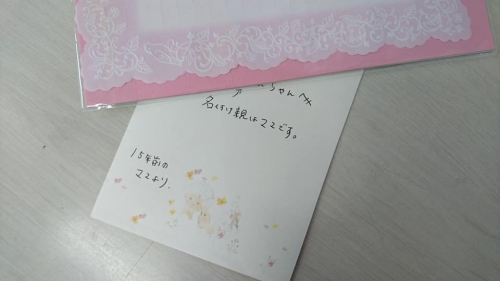 ちゃんへ
名付け親はママです。
15年前の
ママより.